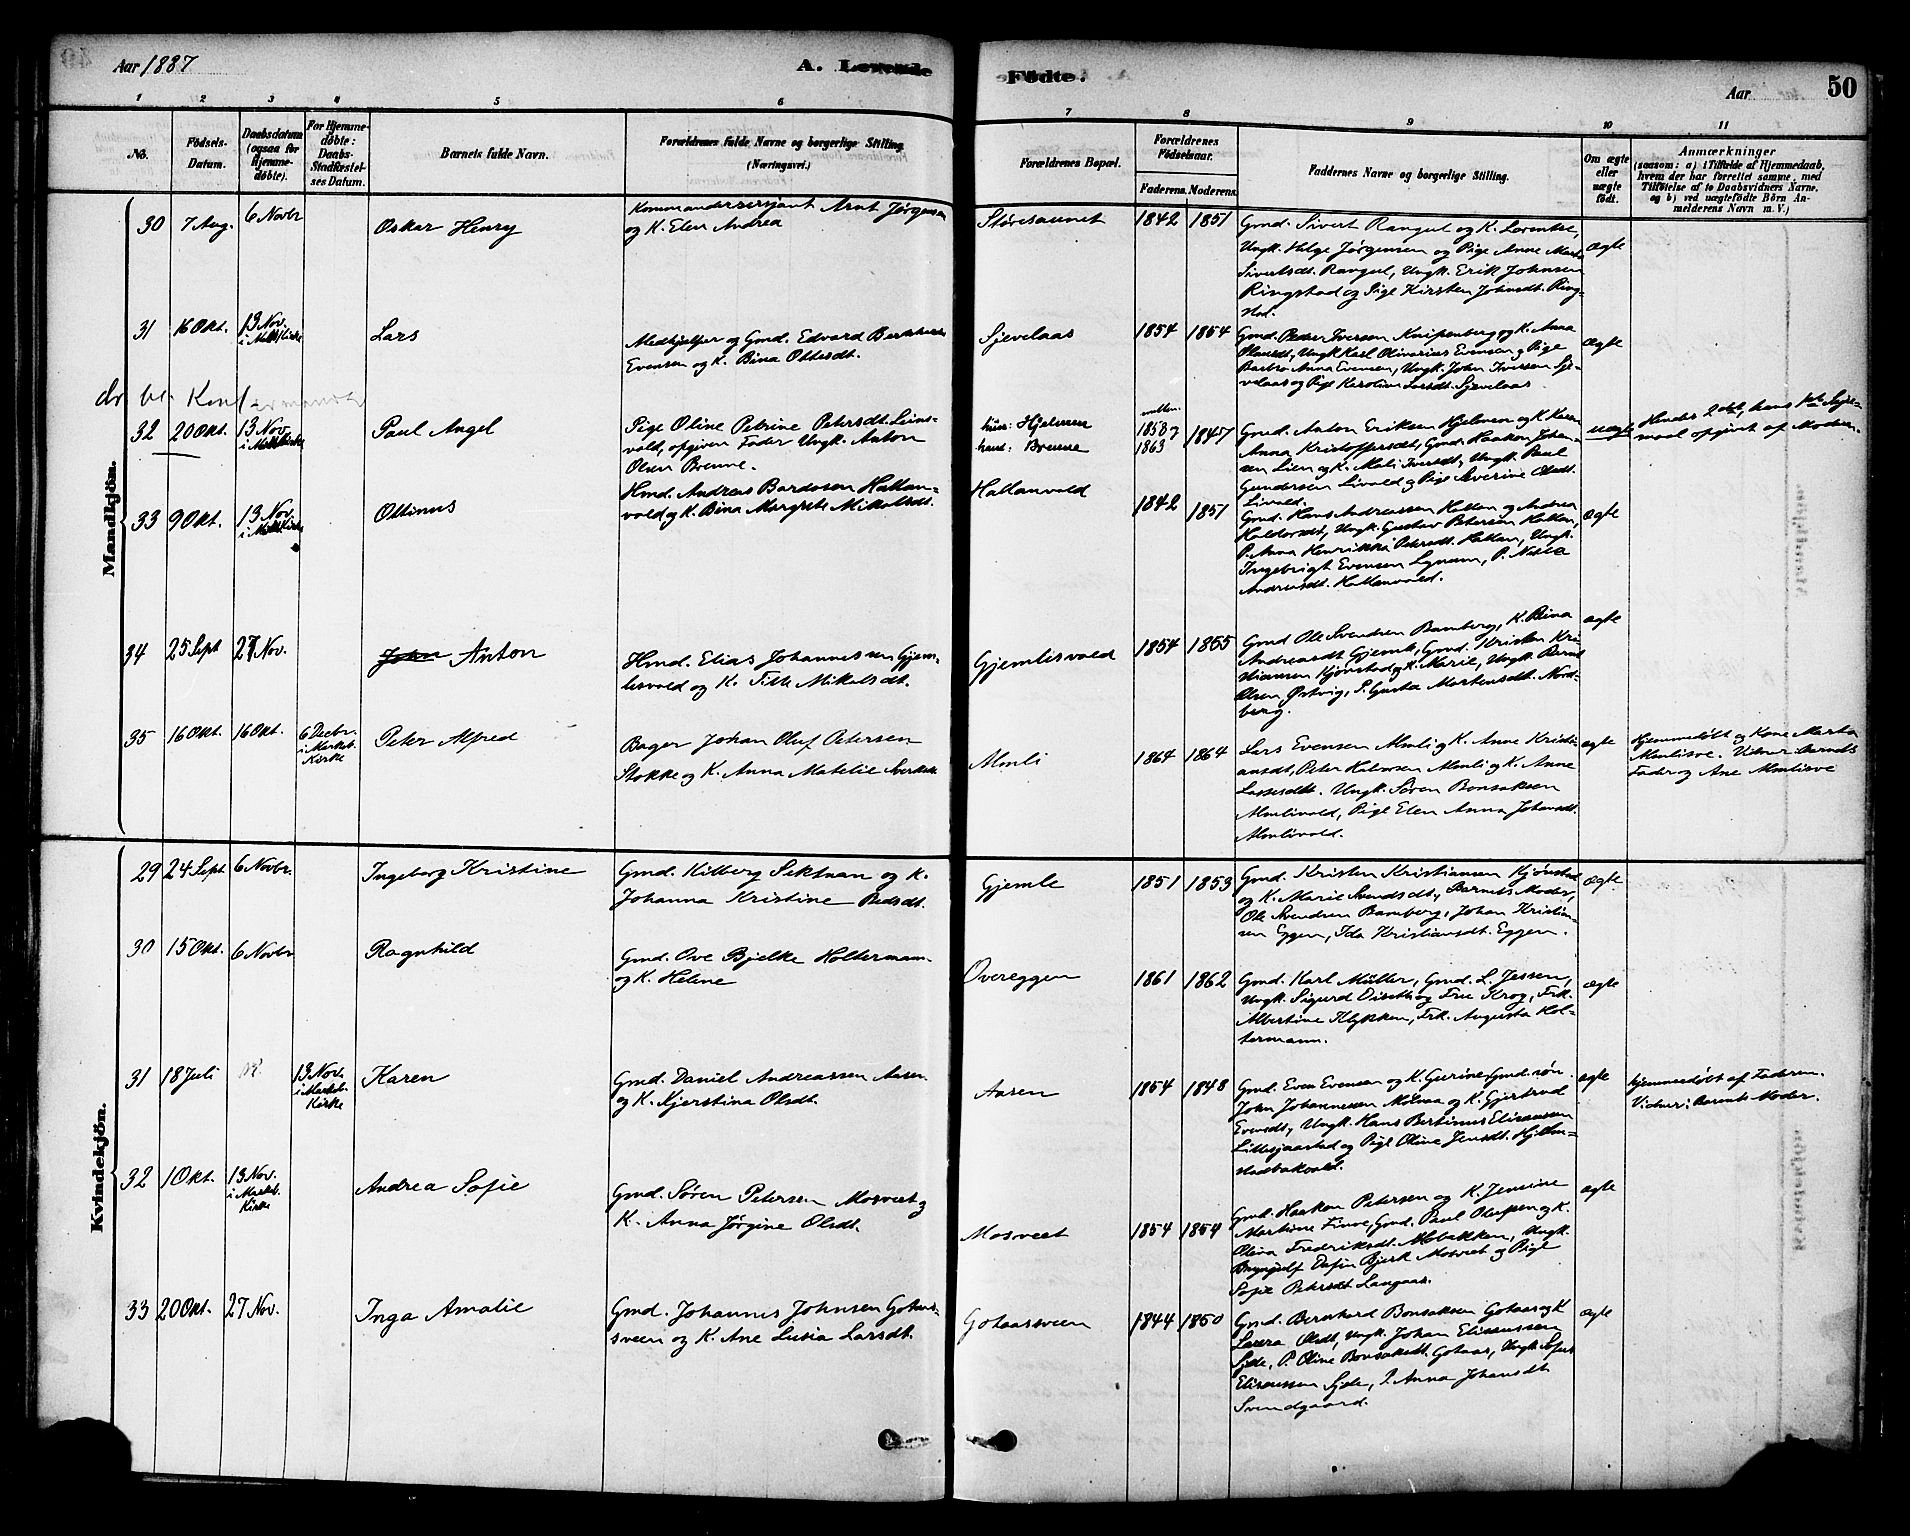 Aar 1887
A. Levende
Födte.
Aar
50
1 2 3 4 5 6 7 8 9 10 11
No.
Födsels-Datum.
Daabsdatum (ogsaa for Hjemme-døbte).
For Hjemme-døbte: Daabs-Stadfæstel-ses Datum.
Barnets fulde Navn.
Forældrenes fulde Navne og borgerlige Stilling (Næringsvei.)
Forældrenes Bopæl.
Forældrenes Födselsaar.
Faderens. Moderens.
Faddernes Navne og borgerlige Stilling.
Om ægte eller uægte født.
Anmærkninger
(saasom: a) i Tilfælde af Hjemmedaab,
hvem der har forrettet samme, med
Tilføielse af to Daabsvidners Navne,
og b) ved uægtefødte Børn An-
melderens Navn m. V.)
Mandkjön.
30 7 Aug. 6 Novbr Oskar Henry
Kommandersersjant Arnt Jørgensen
og K. Elen Andrea
Støresaunet 1842 1851
Gmd. Sivert Rangul og K. Lorentse,
Ungk. Helge Jørgensen og Pige Anne Marta
Sivertsdt. Rangul, Ungk. Erik Johnsen
Ringstad og Pige Kirsten Johnsdt. Ring-
stad.
ægte
31 16 Okt. 13 Nov. i Mark. Kirke Lars
Medhjelper og Gmd. Edvard Bernhard
Evensen og K. Bina Ottesdt.
Sjevelaas 1854 1854
Gmd. Peder Iversen Knipenberg og K. Anna
Olausdt., Ungk. Karl Olivarius Evensen og Pige
Barbro Anna Evensen, Ungk. John Iversen Sje-
velaas og Pige Karoline Larsdt. Sjevelaas.
ægte
32 20 Okt. 13 Nov. i Mark. Kirke Paul Angel
Pige Oline Petrine Petersdt. Leins-
vald, opgiven Fader Ungk. Anton
Olsen Brenne.
hun: Hjelmen
ham: Brenne
mellem 1858 og 1863 1847
Gmd. Anton Eriksen Hjelmen og K. Karen
Anna Kristoffersdt., Gmd. Haakon Johan-
sen Lien og K. Mali Iversdt., Ungk. Paul
Gundersen Livald og Pige Severine Olsdt.
Livald.
uægte
Hendes 2det, hans 1ste Leier-
maal opgivet af Moderen.
33 9 Okt. 13 Nov. i Mark. Kirke Ottinus
Hmd. Andreas Bardosen Hallan-
vald og K. Bina Margrete Mikalsdt.
Hallanvald 1842 1851
Gmd. Hans Andreassen Hallan og Andrea
Haldorsdt., Ungk. Gustav Petersen Hallan,
P. Anna Henrikke Petersdt. Hallan, Ungk.
Ingebrigt Evensen Lynum, P. Nilla
Andreasdt. Hallanvald.
ægte
34 25 Sept 27 Nov. John Anton
Hmd. Elias Johannessen Gjem-
lisvald og K. Titte Mikalsdt.
Gjemlisvald 1854 1855
Gmd Ole Svendsen Bamberg, K. Bina
Andreasdt. Gjemle, Gmd. Kristen Kri-
stiansen Kjønstad og K. Marie, Ungk. Bernt
Olsen Østvig, P. Gusta Martensdt. Nord-
berg.
ægte
35 16 Okt. 16 Okt. 6 Decbr. i Markab. Kirke Peter Alfred
Bager Johan Oluf Petersen
Stokke og K. Anna Matelie
Almli 1864 1864
Lars Evensen Almli og K. Anne Kristi-
ansdt., Peter Halvorsen Almli og K. Anne
Lassesdt. Ungk. Søren Bonsaksen
Almlivald, Pige Elen Anna Johansdt.
Almlivald.
ægte
Hjemmedøbt af Kone Marta
Almlisve. Vidner: Barnets
Fader og Ane Almlisve
Kvindekjön.
29 24 Sept. 6 Novbr. Ingeborg Kristine
Gmd. Hilberg Sektnan og K.
Johanna Kristine Pedsdt.
Gjemle 1851 1853
Gmd. Kristen Kristiansen Kjønstad
og K. Marie Svendsdt., Barnets Moder,
Ole Svendsen Bamberg, Johan Kristian-
sen Eggen, Ida Kristiansdt. Eggen.
ægte
30 15 Okt. 6 Novbr Ragnhild
Gmd. Ove Bjelke Holtermann
og K. Helene
Overeggen 1861 1862
Gmd. Karl Müller, Gmd. L. Jessen,
Ungk. Sigurd Diseth og Frue Krog, Frk.
Albertine Klykken, Frk. Augusta Hol-
termann.
ægte
31 18 Juli 13 Nov. i Markab. Kirke Karen
Gmd. Daniel Andreassen Aasen
og K. Kjerstina Olsdt.
Aasen 1854 1848
Gmd. Even Evensen og K. Gurine, Gmd.
John Johannessen Molmа og K. Gjertrud
Evensdt., Ungk. Hans Bertinus Elisæussen
Lillesjaastad og Pige Oline Jensdt. Hjelm-
stadbakvald.
ægte
hjemmedøbt af Faderen.
Vidner: Barnets Moder.
32 1 Okt. 13 Nov. i Markab. Kirke Andrea Sofie
Gmd. Søren Petersen Mosveet og
K. Anna Jørgine Olsdt.
Mosveet 1854 1854
Gmd. Haakon Petersen og K. Jensine
Martine Finne, Gmd. Paul Olausen og K.
Oliva Fredriksdt. Mobakken, Ungk.
Bryngulf Dafin Bjerk Mosveet og Pige
Sofie Petersdt Langaas.
ægte
33 20 Okt. 27 Nov. Inga Amalie
Gmd. Johannes Johnsen Gotaas-
sveen og K. Ane Lusia Larsdt.
Gotaasveen 1844 1850
Gmd. Bernhard Bonsaksen Gotaas og K
Laura Olsdt., Ungk. Johan Elisæussen
Sjde, P. Oline Bonsaksdt. Gotaas, Ungk. Sefus
Elisæussen Sjde, P. Anna Johansdt
Svendgaard.
ægte